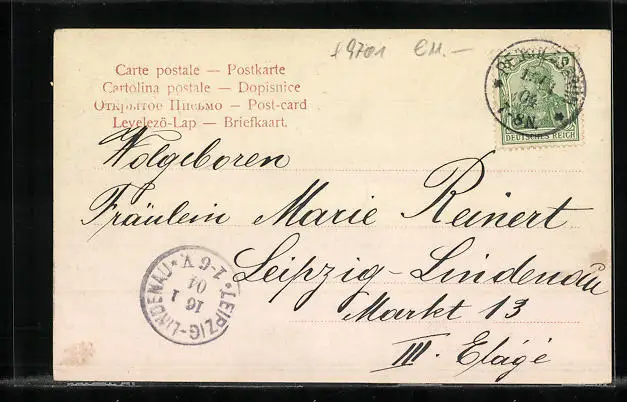 19701 €11.-
Carte postale — Postkarte
Cartolina postale — Dopisnice
Открытое Письмо — Post-card
Levelező-Lap — Briefkaart.
DEUTSCHES REICH
Wolgeboren
Fräulein Marie Reinert
Leipzig-Lindenau
Markt 13
III. Etágé
LEIPZIG-LINDENAU
16 1
04
7-6 V.